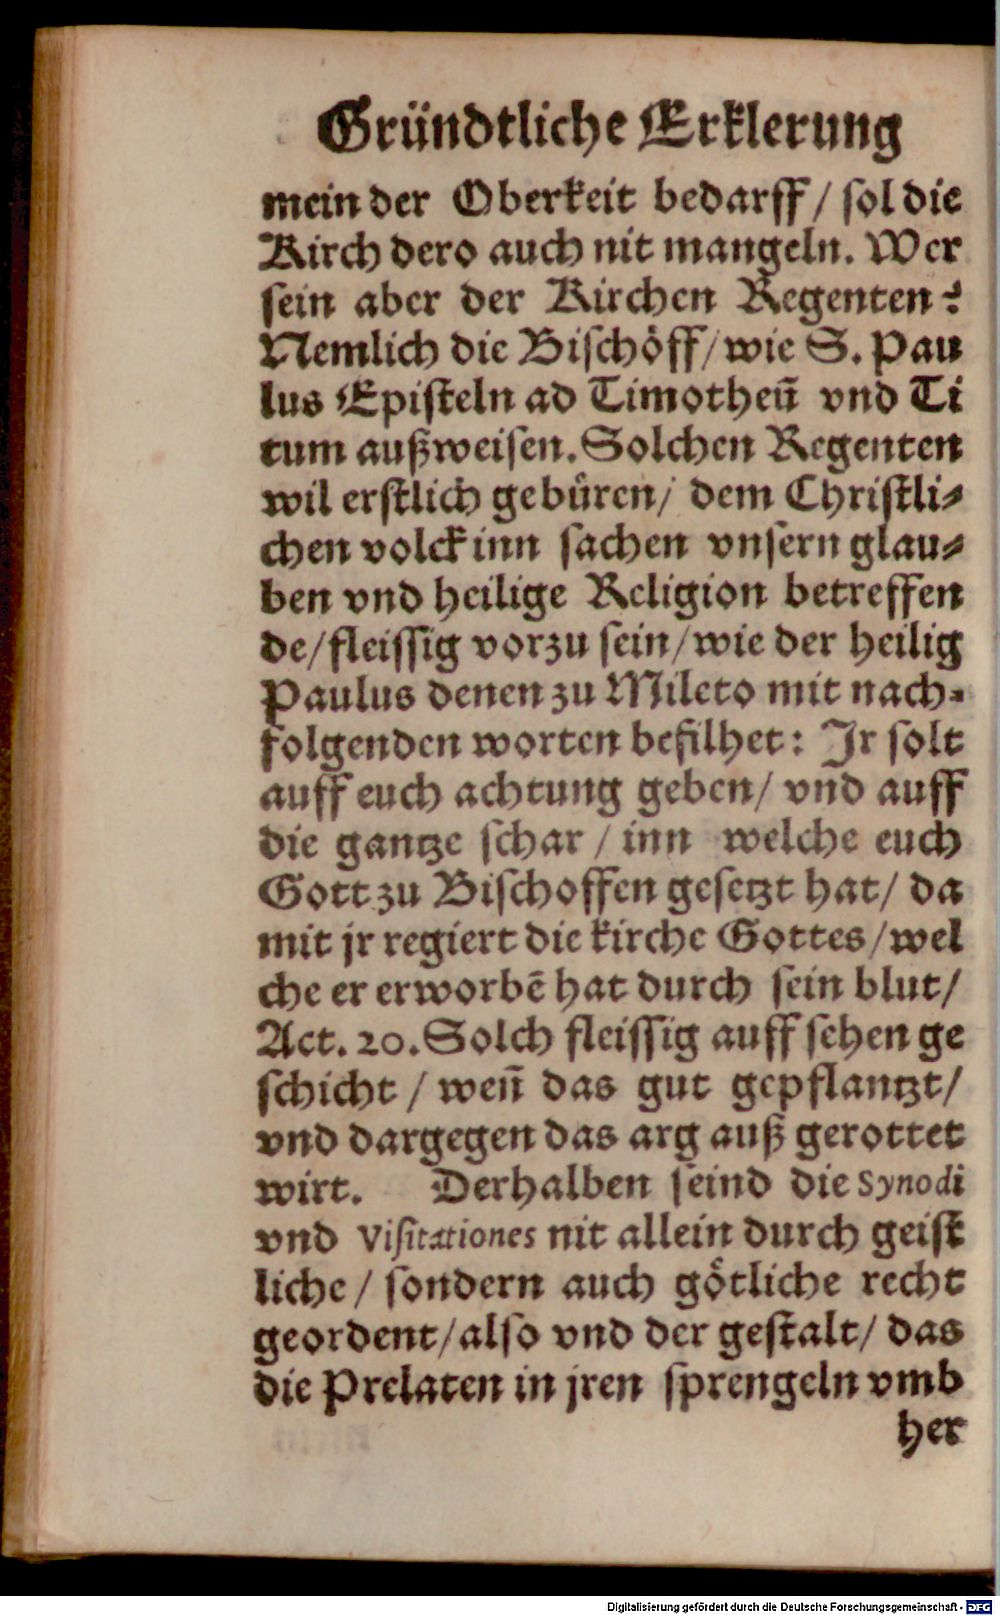 Gründtliche Erklerung
mein der Oberkeit bedarff / sol die
Kirch dero auch nit mangeln. Wer
sein aber der Kirchen Regenten?
Nemlich die Bischöff / wie S. Pau
lus Episteln ad Timotheū vnd Ti
tum außweisen. Solchen Regenten
wil erstlich gebüren / dem Christli⸗
chen volck inn sachen vnsern glau⸗
ben vnd heilige Religion betreffen
de / fleissig vorzu sein / wie der heilig
Paulus denen zu Mileto mit nach⸗
folgenden worten befilhet: Jr solt
auff euch achtung geben / vnd auff
die gantze schar / inn welche euch
Gott zu Bischoffen gesetzt hat / da
mit jr regiert die kirche Gottes / wel
che er erworbē hat durch sein blut /
Act. 20. Solch fleissig auff sehen ge
schicht / weñ das gut gepflantzt /
vnd dargegen das arg auß gerottet
wirt. Derhalben seind die Synodi
vnd Visitationes nit allein durch geist
liche / sondern auch götliche recht
geordent / also vnd der gestalt / das
die Prelaten in jren sprengeln vmb
her
Digitalisierung gefördert durch die Deutsche Forschungsgemeinschaft - DFG